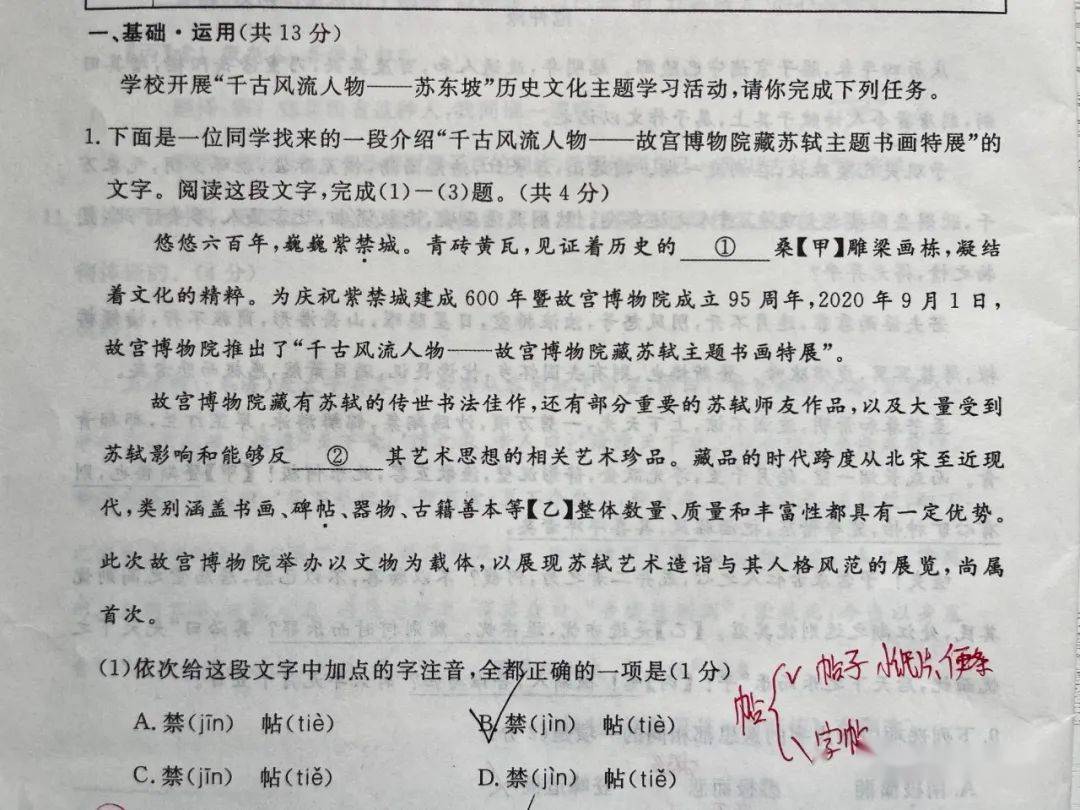 一、基础·运用(共13分)
学校开展“千古风流人物——苏东坡”历史文化主题学习活动,请你完成下列任务。
1.下面是一位同学找来的一段介绍“千古风流人物——故宫博物院藏苏轼主题书画特展”的
文字。阅读这段文字,完成(1)-(3)题。(共4分)
悠悠六百年,巍巍紫禁城。青砖黄瓦,见证着历史的 ① 桑【甲】雕梁画栋,凝结
着文化的精粹。为庆祝紫禁城建成600年暨故宫博物院成立95周年,2020年9月1日,
故宫博物院推出了“千古风流人物——故宫博物院藏苏轼主题书画特展”。
故宫博物院藏有苏轼的传世书法佳作,还有部分重要的苏轼师友作品,以及大量受到
苏轼影响和能够反 ② 其艺术思想的相关艺术珍品。藏品的时代跨度从北宋至近现
代,类别涵盖书画、碑帖、器物、古籍善本等【乙】整体数量、质量和丰富性都具有一定优势。
此次故宫博物院举办以文物为载体,以展现苏轼艺术造诣与其人格风范的展览,尚属
首次。
(1)依次给这段文字中加点的字注音,全都正确的一项是(1分)
帖子 小纸片、便条
帖
字帖
A.禁(jīn) 帖(tiè) B.禁(jìn) 帖(tiè)
C.禁(jīn) 帖(tiě) D.禁(jìn) 帖(tiě)